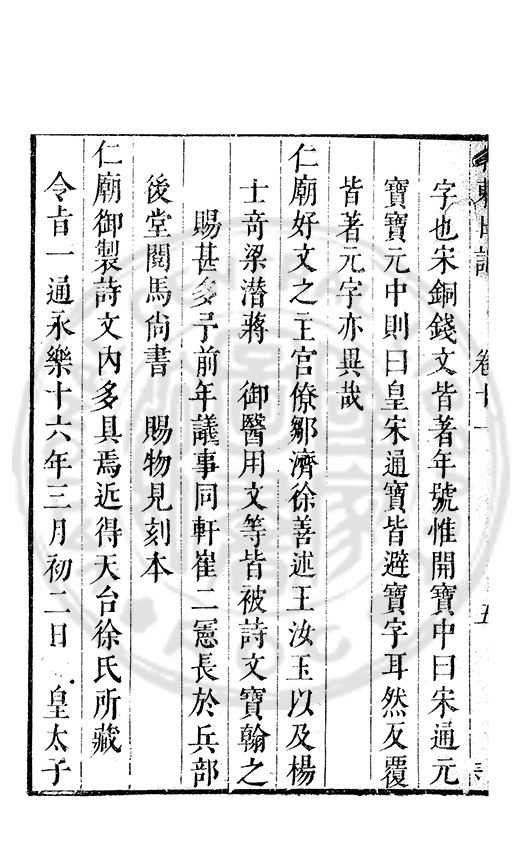 字也宋銅錢文皆著年號惟開寶中曰宋通元
寶寶元中則曰皇宋通寶皆避寶字耳然反覆
皆著元字亦異哉
仁廟好文之主官僚鄒濟徐善述王汝玉以及楊
士奇梁潛蔣　御醫用文等皆被詩文寶翰之
賜甚多予前年議事同軒崔二憲長於兵部
後堂閱馬尚書　賜物見刻本
仁廟御製詩文內多具焉近得天台徐氏所藏
令旨一通永樂十六年三月初二日　皇太子